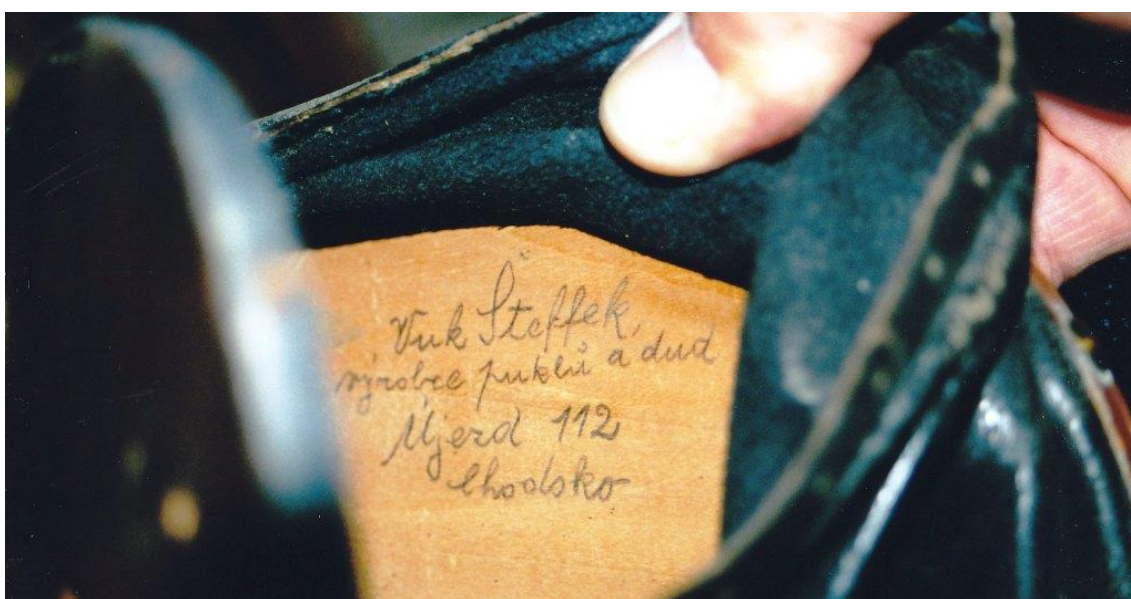 Vuk Šteffek,
výrobce puklů a dud
Újezd 112
Chodsko